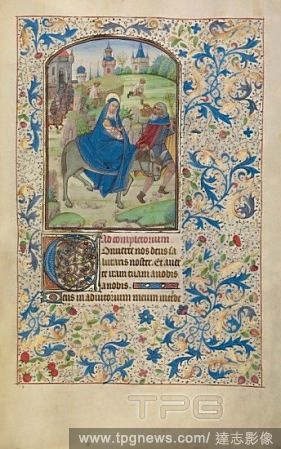 Ad completorium
Onverte nos deus sa
lutaris noster. Et auer
te iram tuam a nobis
a nobis.
Deus in adiutorium meum intende
TPG
www.tpgnews.com/ 達志影像